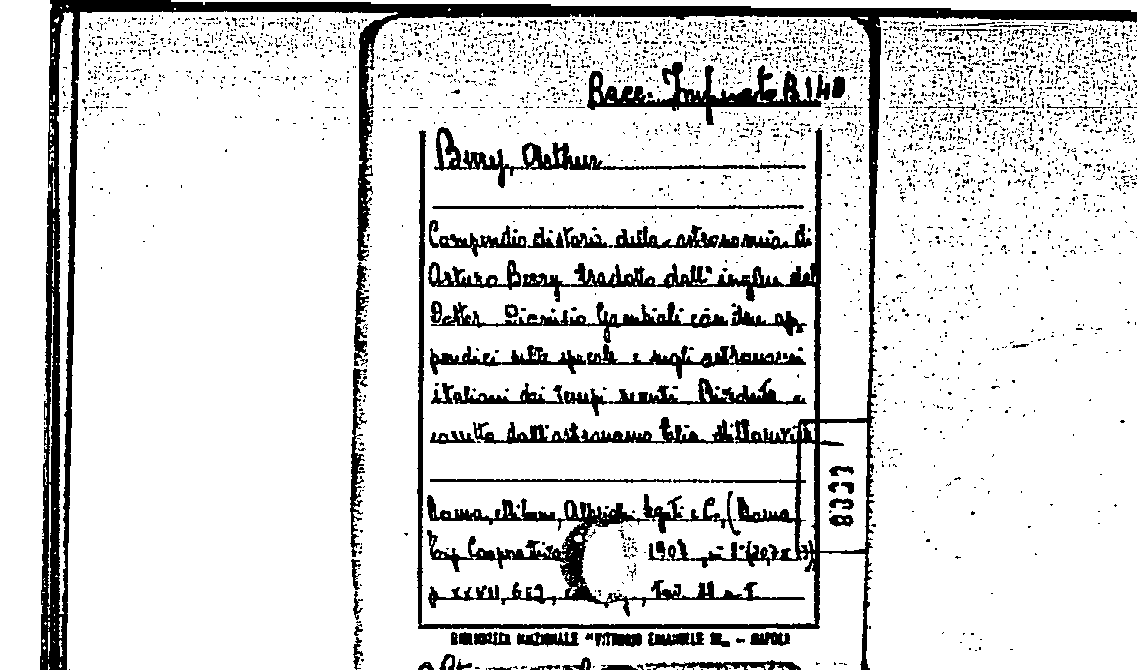 Racc. Imperato B. 140
Berry, Arthur
Compendio di storia della astronomia di
Arturo Berry tradotto dall' inglese del
Dottor Dionisio Gambioli con due ap
pendici sulle specole e sugli astronomi
italiani dai tempi recenti. Riveduta e
corretta dall'astronomo Elia Millosevich
Roma, Milano, Albrighi Segati e C., (Roma
Tip. Cooperativa 1907, in 8° (20,7x13)
p. XXVII, 612, Tav. 11 n. t.
BIBLIOTECA NAZIONALE "VITTORIO EMANUELE III" - NAPOLI